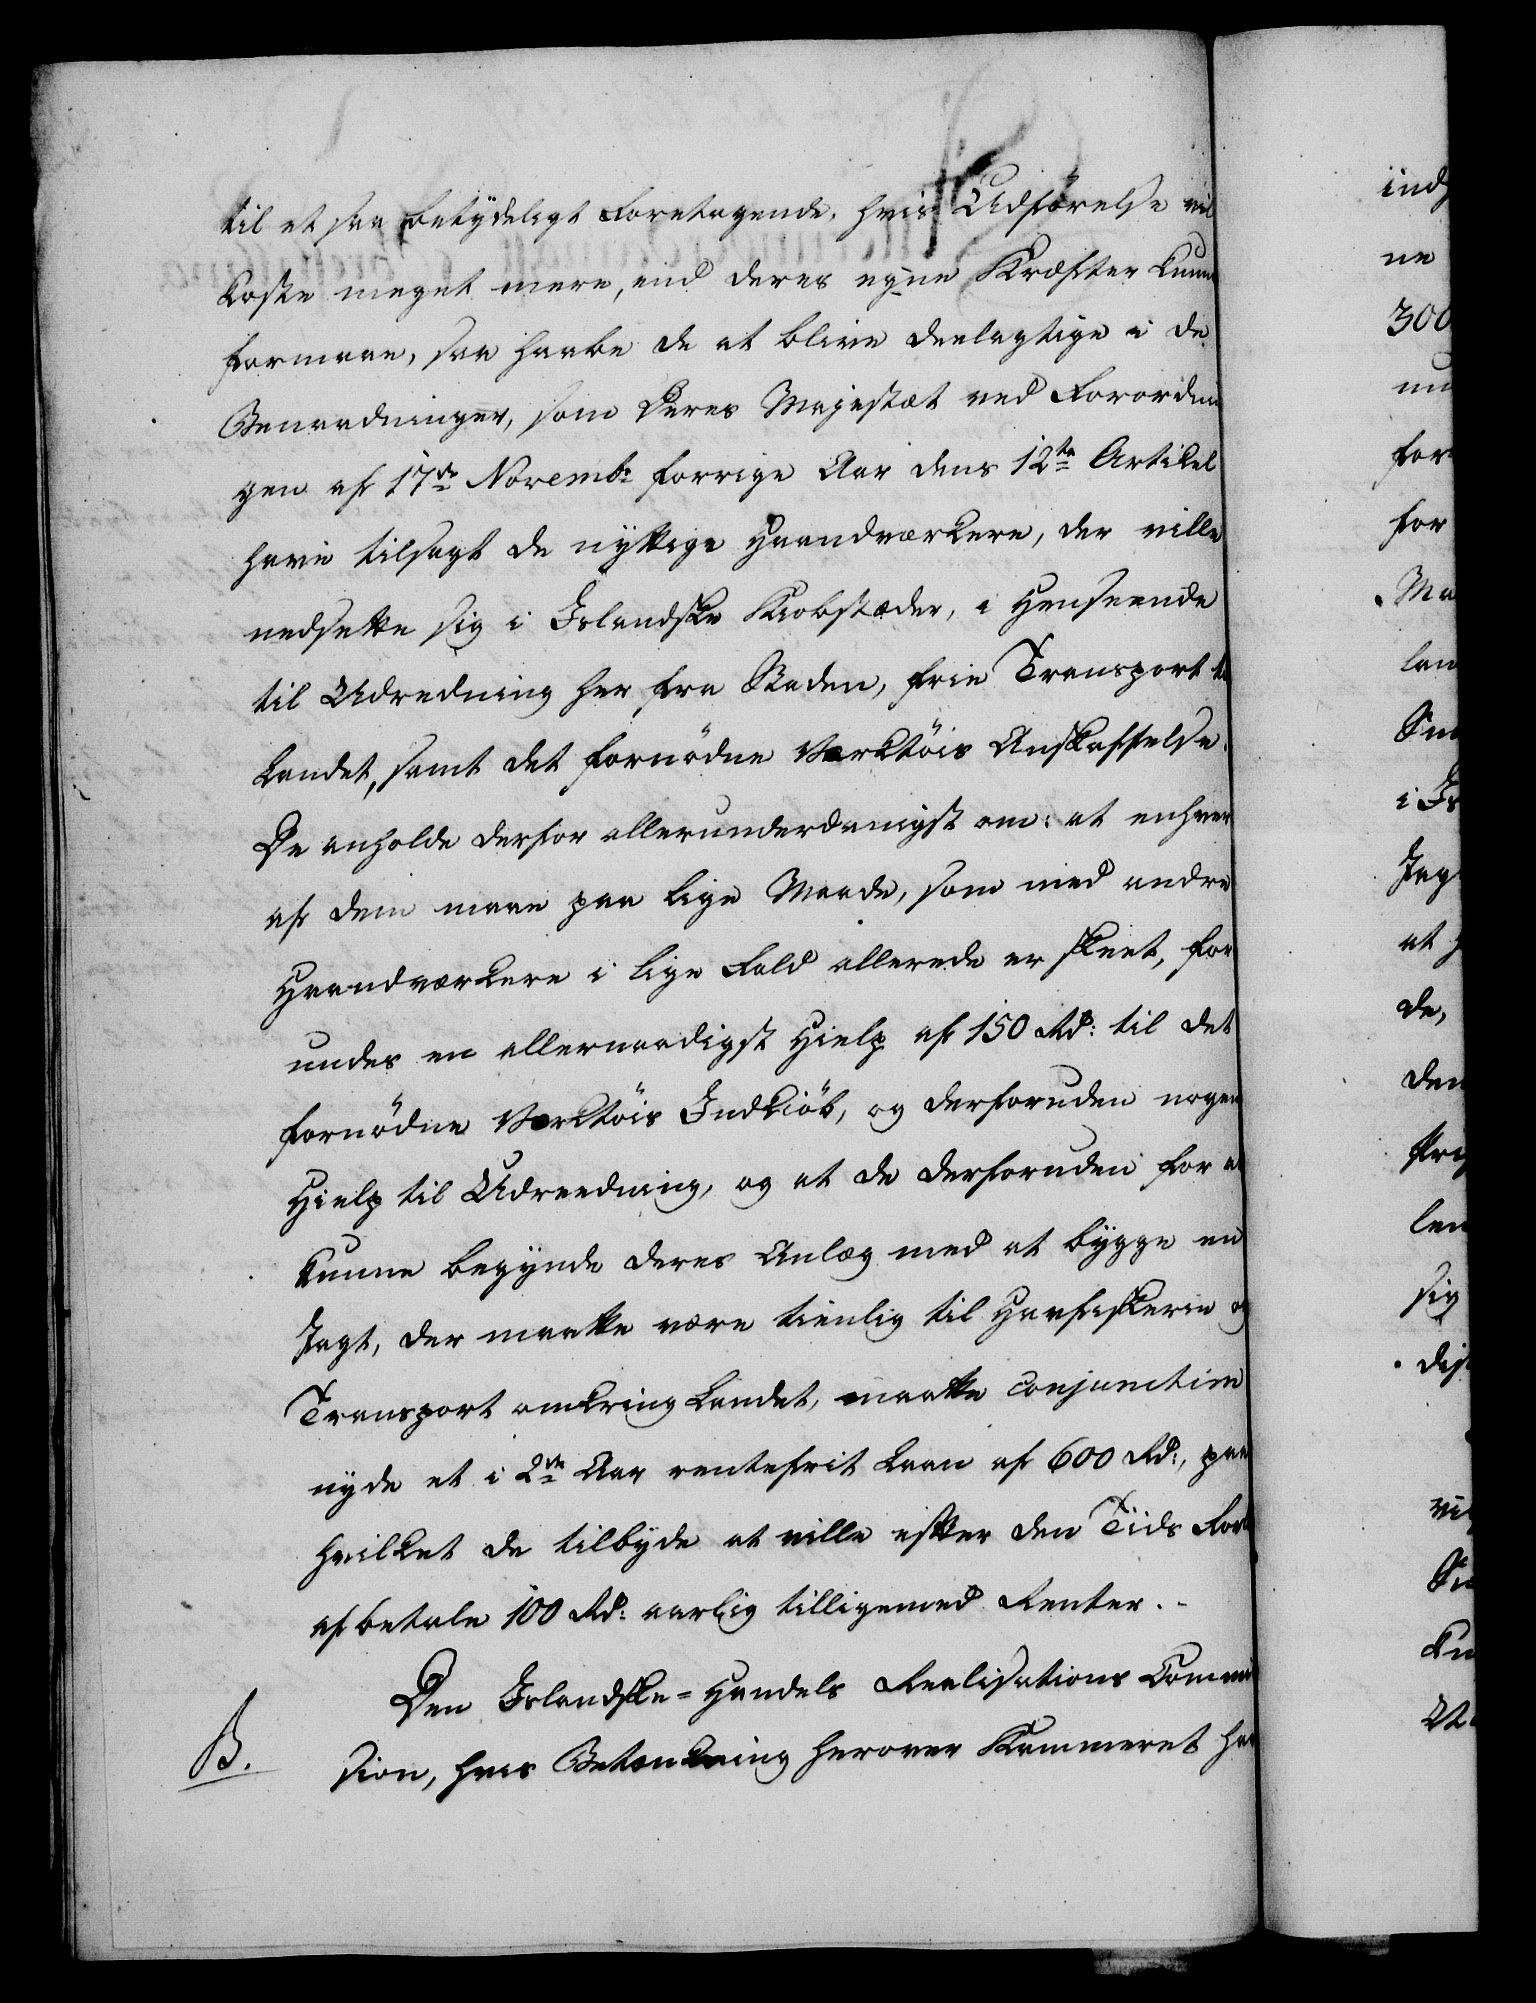 til et saa betydeligt Foretagende, hvis Udførelse vil
koste meget mere, end deres egne Kræfter kunne
formaae, saa haabe de at blive deelagtige i de
Benaadninger, som Deres Majestæt ved Forordnin
gen af 17de Novembr forrige Aar dens 12te Artikel
have tilsagt de nyttige Haandværkere, der ville
nedsætte sig i Islandske Kiøbstæder, i Henseende
til Udredning her fra Staden, frie Transport til
Landet, samt det fornödne Værktöis Anskaffelse.
De anholde derfor allerunderdanigst om: at enhver
af dem maae paa lige Maade, som med andre
Haandværkere i lige Fald allerede er skeet, for
undes en allernaadigst Hielp af 150 Rd: til det
fornödne Værktöis Indkiöb, og derforuden nogen
Hielp til Udreedning, og at de derforuden for at
kunne begynde deres Anlæg med at bygge en
Jagt, der maatte være tienlig til Havfiskerie og
Transport omkring Landet, maatte conjunctim
nyde et i 2de Aar rentefrit Laan af 600 Rd:, paa
hvilket de tilbyde at ville efter den Tids Forløb
afbetale 100 Rd: aarlig tilligemed Renter.-
Den Islandske-Handels Realisations Commis
B.
sion, hvis Betænkning herover Kammeret har
ne
300
for
for
de,
sig